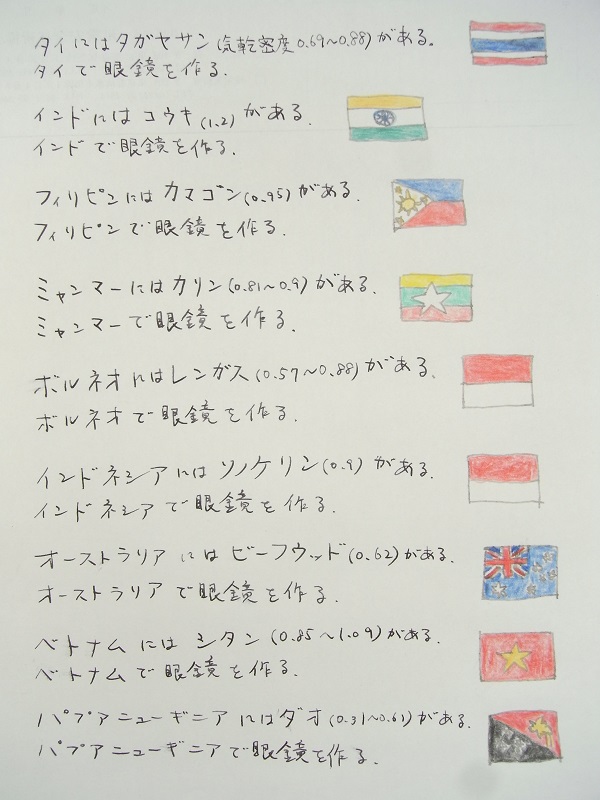 タイにはタガヤサン(気乾密度0.69~0.88)がある。
タイで眼鏡を作る.
インドにはコウキ(1.2)がある.
インドで眼鏡を作る.
フィリピンにはカマゴン(0.95)がある.
フィリピンで眼鏡を作る.
ミャンマーにはカリン(0.81~0.9)がある.
ミャンマーで眼鏡を作る.
ボルネオにはレンガス(0.57~0.88)がある.
ボルネオで眼鏡を作る.
インドネシアにはソノケリン(0.9)がある.
インドネシアで眼鏡を作る.
オーストラリアにはビーフウッド(0.62)がある.
オーストラリアで眼鏡を作る.
ベトナムにはシタン(0.85~1.09)がある.
ベトナムで眼鏡を作る.
パプアニューギニアにはダオ(0.31~0.61)がある.
パプアニューギニアで眼鏡を作る.